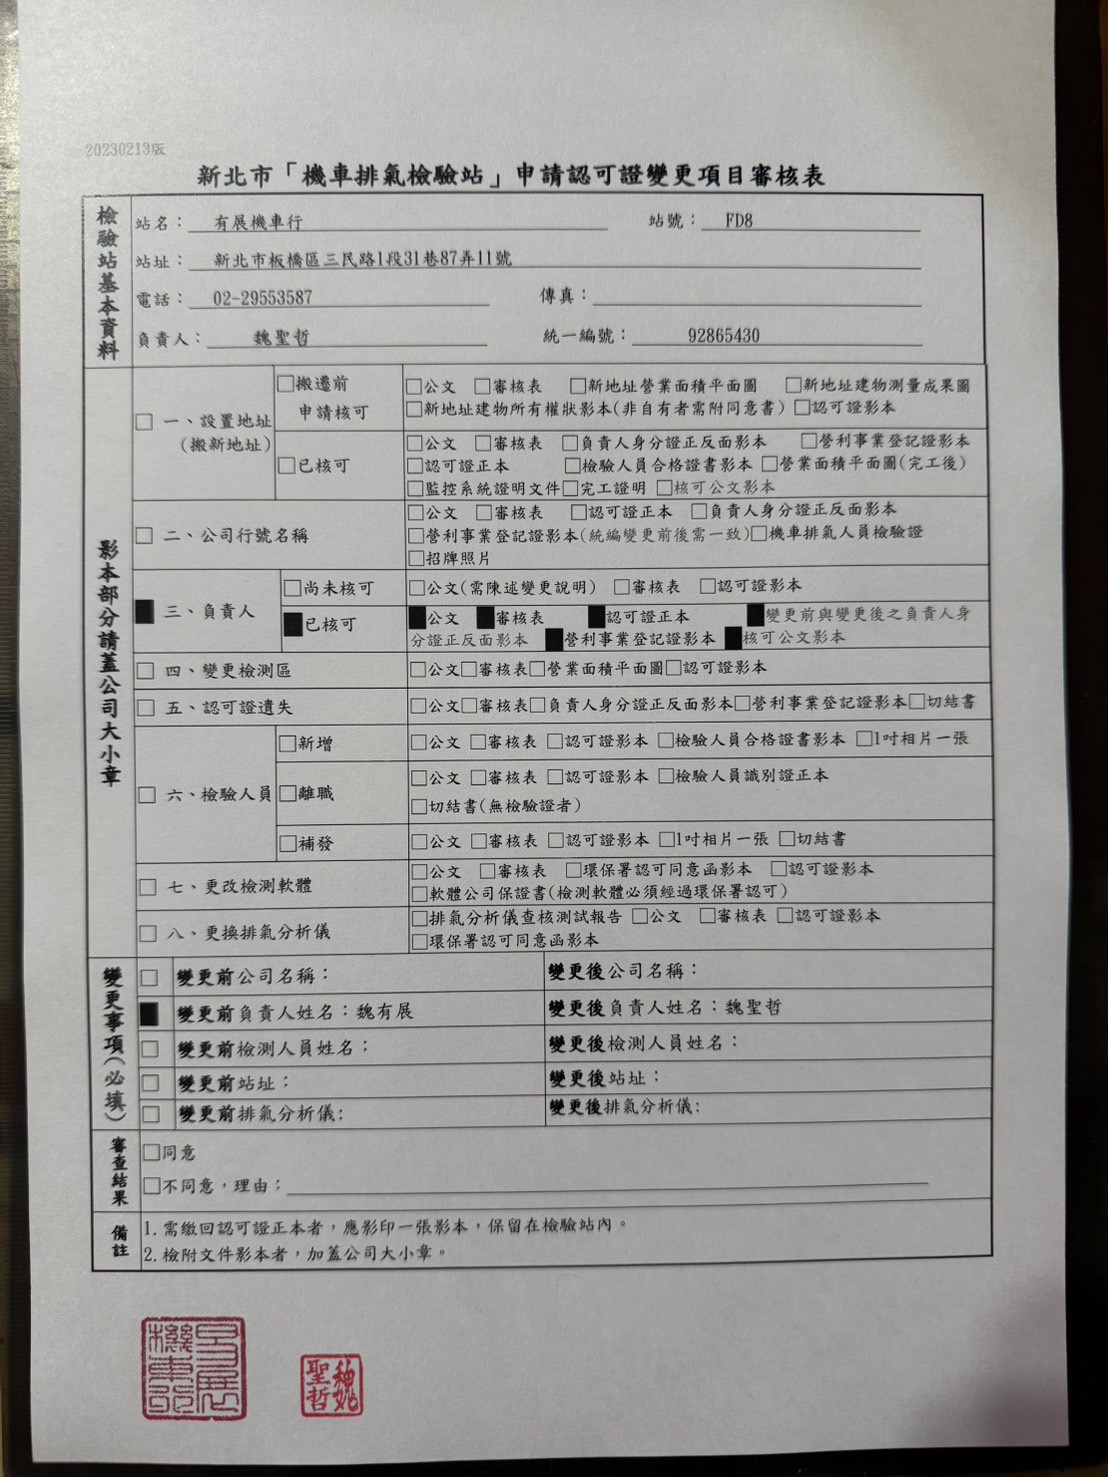 20230213版
新北市「機車排氣檢驗站」申請認可證變更項目審核表
檢驗站基本資料
站名： 有展機車行 站號： FD8
站址： 新北市板橋區三民路1段31巷87弄11號
電話： 02-29553587 傳真：
負責人： 魏聖哲 統一編號： 92865430
影本部分請蓋公司大小章
□ 一、設置地址(搬新地址)
□搬遷前申請核可
□公文 □審核表 □新地址營業面積平面圖 □新地址建物測量成果圖
□新地址建物所有權狀影本(非自有者需附同意書) □認可證影本
□已核可
□公文 □審核表 □負責人身分證正反面影本 □營利事業登記證影本
□認可證正本 □檢驗人員合格證書影本 □營業面積平面圖(完工後)
□監控系統證明文件□完工證明 □核可公文影本
□ 二、公司行號名稱
□公文 □審核表 □認可證正本 □負責人身分證正反面影本
□營利事業登記證影本(統編變更前後需一致)□機車排氣人員檢驗證
□招牌照片
■ 三、負責人
□尚未核可 □公文(需陳述變更說明) □審核表 □認可證影本
■已核可 ■公文 ■審核表 ■認可證正本 ■變更前與變更後之負責人身
分證正反面影本 ■營利事業登記證影本 ■核可公文影本
□ 四、變更檢測區 □公文□審核表□營業面積平面圖□認可證影本
□ 五、認可證遺失 □公文□審核表□負責人身分證正反面影本□營利事業登記證影本□切結書
□ 六、檢驗人員
□新增 □公文 □審核表 □認可證影本 □檢驗人員合格證書影本 □1吋相片一張
□離職 □公文 □審核表 □認可證影本 □檢驗人員識別證正本
□切結書(無檢驗證者)
□補發 □公文 □審核表 □認可證影本 □1吋相片一張 □切結書
□ 七、更改檢測軟體 □公文 □審核表 □環保署認可同意函影本 □認可證影本
□軟體公司保證書(檢測軟體必須經過環保署認可)
□ 八、更換排氣分析儀 □排氣分析儀查核測試報告 □公文 □審核表 □認可證影本
□環保署認可同意函影本
變更事項(必填)
□ 變更前公司名稱： 變更後公司名稱：
■ 變更前負責人姓名：魏有展 變更後負責人姓名：魏聖哲
□ 變更前檢測人員姓名： 變更後檢測人員姓名：
□ 變更前站址： 變更後站址：
□ 變更前排氣分析儀: 變更後排氣分析儀:
審查結果
□同意
□不同意，理由：
備註
1.需繳回認可證正本者，應影印一張影本，保留在檢驗站內。
2.檢附文件影本者，加蓋公司大小章。
有展機車行
魏聖哲